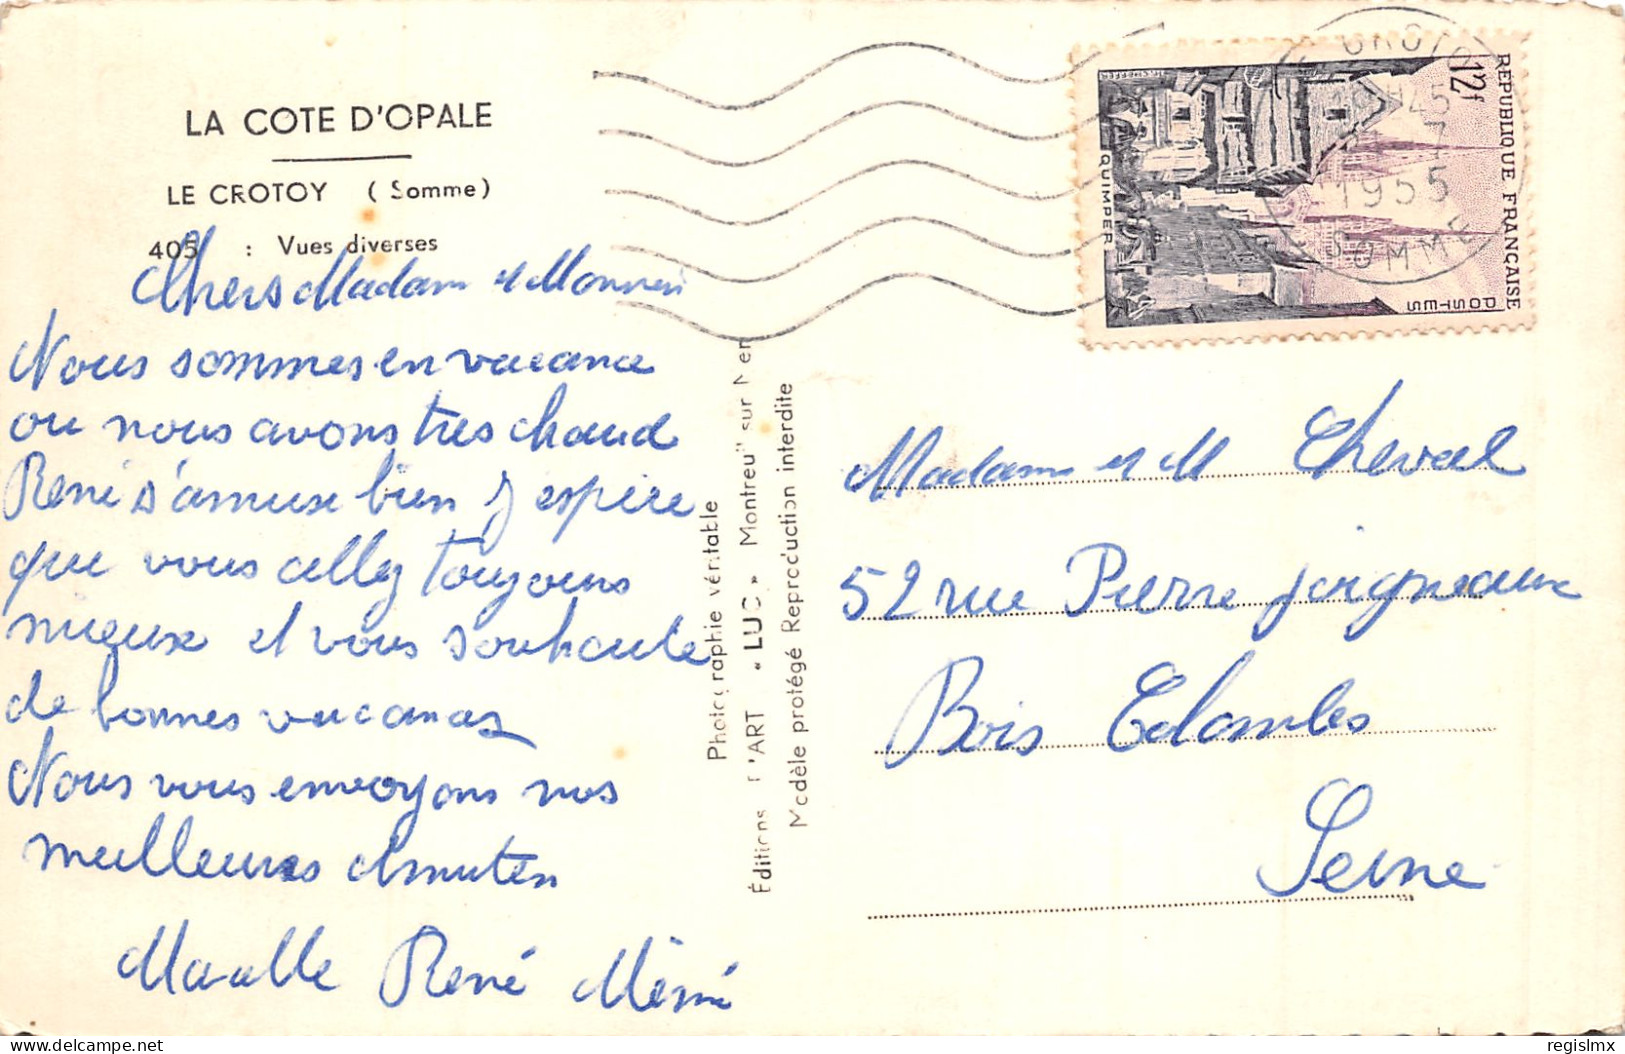 LA COTE D'OPALE
LE CROTOY (Somme)
405 : Vues diverses
Chers Madam et Monsieu
Nous sommes en vacance
ou nous avons tres chaud
René s'amuse bien J espère
que vous allez toujours
mieux et vous souhaite
de bonnes vacances
Nous vous envoyons nos
meilleures
René Mémé
Photographie véritable
Éditions D'ART « LUC » Montreuil sur Mer
Modèle protégé Reproduction interdite
CROTOY
1955
SOMME
12f
RÉPUBLIQUE FRANÇAISE
POSTES
QUIMPER
Madam et M Cheval
52 rue Pierre Joigneaux
Bois Colombes
Seine
regislmx